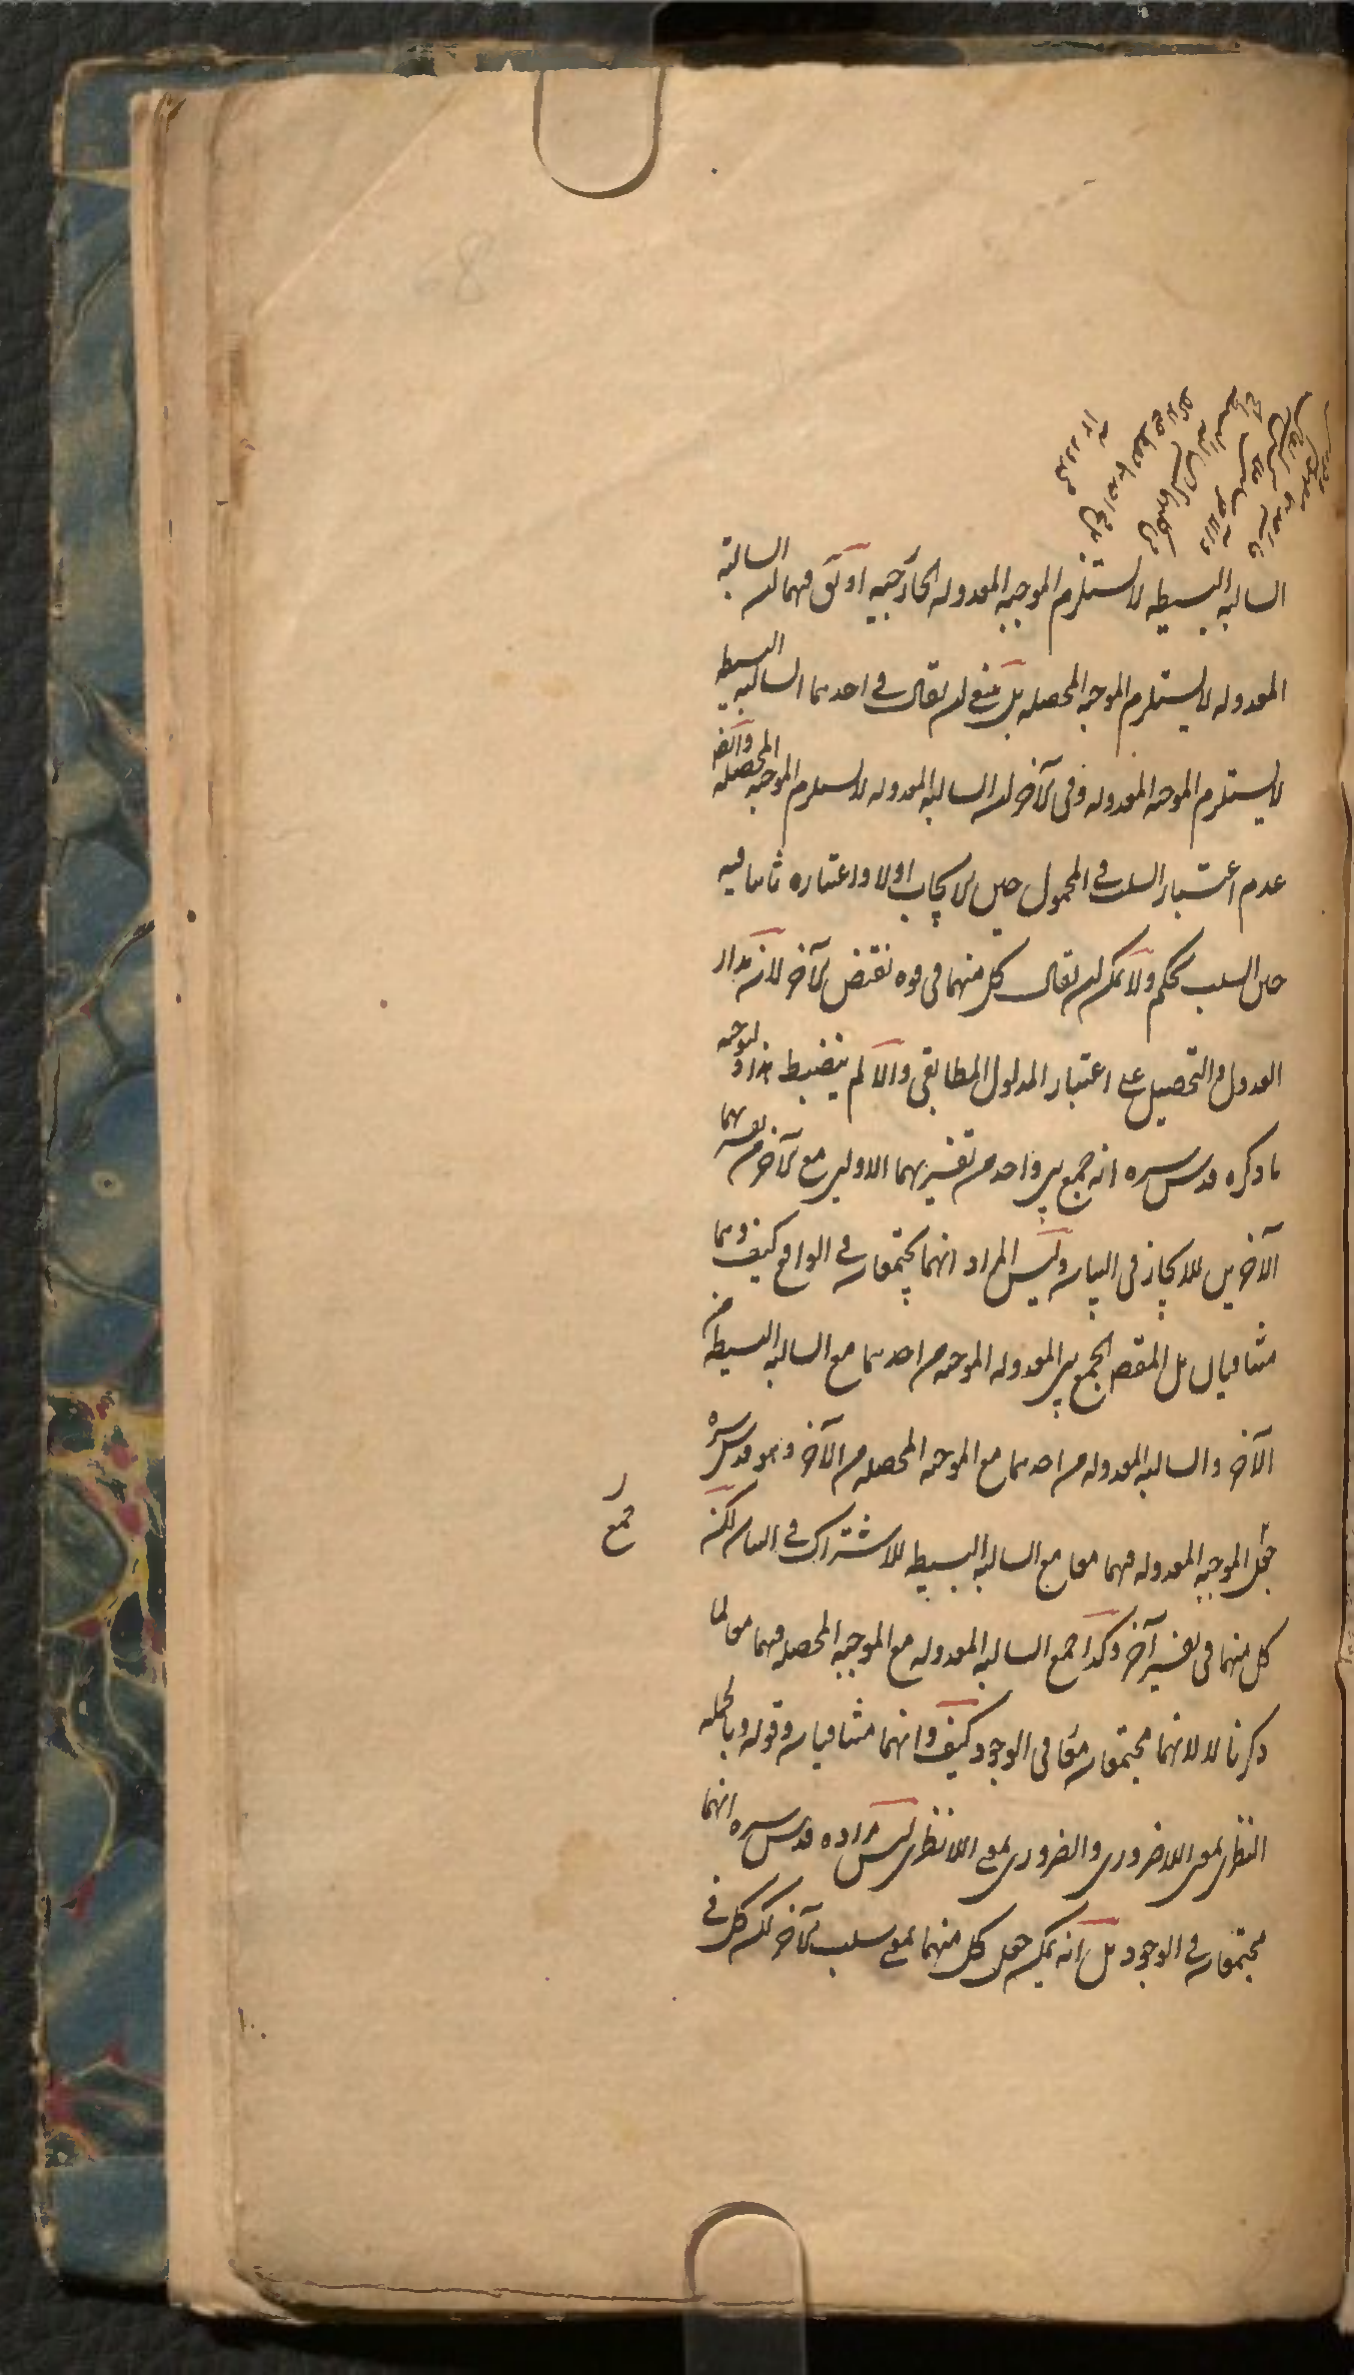 السالبه البسيطه لا تستلزم الموجبه المعدوله الخارجيه او يق فيهما ان السالبة
المعدوله لا يستلزم الموجبه المحصله بل ينبغي ان يقال في احدهما السالبه البسيطه
لا يستلزم الموجبه المعدوله وفي الآخر ان السالبه المعدوله لا يستلزم الموجبه المحصله وايضا
عدم اعتبار السلب في المحمول حين الايجاب اولا واعتباره ثانيا فيه
حين السلب تحكم ولا يمكن ان يقال كل منهما في قوه نقيض الآخر لان مدار
العدول والتحصيل على اعتبار المدلول المطابقي والا لم ينضبط هذا وتوجيه
ما ذكره قدس سره انه جمع بين واحد من تفسيريهما الاولين مع الآخر من تفسيريهما
الآخرين للايجاز في البيان وليس المراد انهما يجتمعان في الواقع كيف وهما
متنافيان بل المقصود الجمع بين المعدوله الموجبه من احدهما مع السالبه البسيطه من
الآخر والسالبه المعدوله من احدهما مع الموجبه المحصله من الآخر وهو قدس سره
جعل الموجبه المعدوله فيهما معا مع السالبه البسيطه للاشتراك في البيان لكن
جمع
كل منهما في تفسير آخر وكذا جمع السالبه المعدوله مع الموجبه المحصله فيهما معا لما
ذكرنا لا لانهما مجتمعان معا في الوجود كيف وانهما متنافيان وقوله وبالجمله
النظرى بمعنى اللاضرورى والضرورى بمعنى اللانظرى ليس مراده قدس سره انهما
مجتمعان في الوجود بل انه يمكن جعل كل منهما بمعنى سلب الآخر لكن كل في